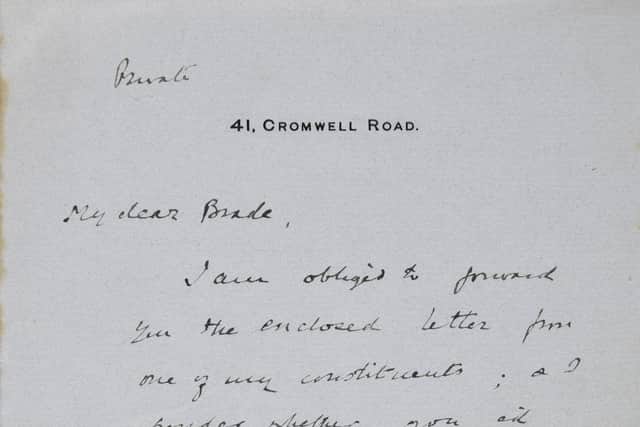 Private
41, CROMWELL ROAD.
My dear Brade,
I am obliged to forward
you the enclosed letter from
one of my constituents; & I
whether you